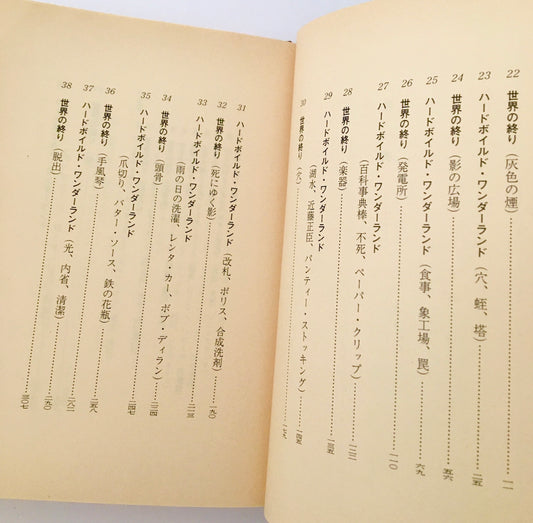 22 世界の終り(灰色の煙)……一一
23 ハードボイルド・ワンダーランド(穴、蛭、塔)……二五
24 世界の終り(影の広場)……五六
25 ハードボイルド・ワンダーランド(食事、象工場、罠)……六九
26 世界の終り(発電所)……一一〇
27 ハードボイルド・ワンダーランド
(百科事典棒、不死、ペーパー・クリップ)……一二三
28 世界の終り(楽器)……一三五
29 ハードボイルド・ワンダーランド
(湖水、近藤正臣、パンティー・ストッキング)……一四五
30 世界の終り(穴)……一七九
31 ハードボイルド・ワンダーランド(改札、ポリス、合成洗剤)……一九〇
32 世界の終り(死にゆく影)……二一三
33 ハードボイルド・ワンダーランド
(雨の日の洗濯、レンタ・カー、ボブ・ディラン)……二二四
34 世界の終り(頭骨)……二四七
35 ハードボイルド・ワンダーランド
(爪切り、バター・ソース、鉄の花瓶)……二五八
36 世界の終り(手風琴)……二八二
37 ハードボイルド・ワンダーランド(光、内省、清潔)……二九〇
38 世界の終り(脱出)……三〇七